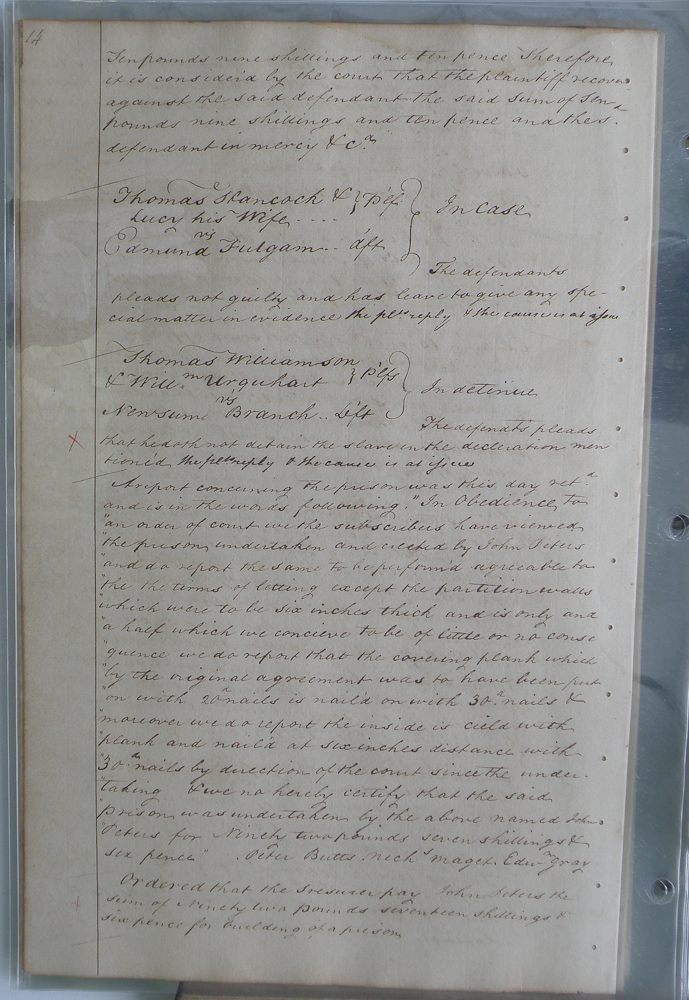 14
Ten pounds nine shillings and ten pence Therefore
it is consider'd by the court that the plaintiff recover
against the said defendant the said sum of Ten
pounds nine shillings and ten pence and the s.
defendant in mercy &ca
Thomas Hancock & } Plf
Lucy his Wife .... } In Case
vs
Edmund Fulgam .. dft
The defendants
pleads not guilty and has leave to give any spe-
cial matter in evidence the plts reply & the cause is at issue
Thomas Williamson
& Willm Urquhart } Plfs } In detinue
vs
Newsume Branch .. Dft
The defendts pleads
that he doth not detain the slave in the decleration men
tioned the plts reply & the cause is at issue
A report concerning the prison was this day retd
and is in the words following. "In Obedience to
"an order of court we the subscribers have viewed
"the prison undertaken and erected by John Peters
"and do report the same to be perform'd agreeable to
"the the terms of letting except the partition walls
"which were to be six inches thick and is only and
"a half which we concieve to be of little or no conse
"quence we do report that the covering plank which
"by the original agreement was to have been put
"on with 20d nails is nail'd on with 30d nails &
"moreover we do report the inside is cield with
"plank and nail'd at six inches distance with
"30d nails by direction of the court since the under-
"taking & we no hereby certify that the said
"prison was undertaken by the above named John
"Peters for Ninety two pounds seven shillings &
six pence" . Peter Butts. Nichs Maget. Edwn Gray
Ordered that the Tresurer pay John Peters the
sum of Ninety two pounds seventeen shillings &
six pence for building of a prison